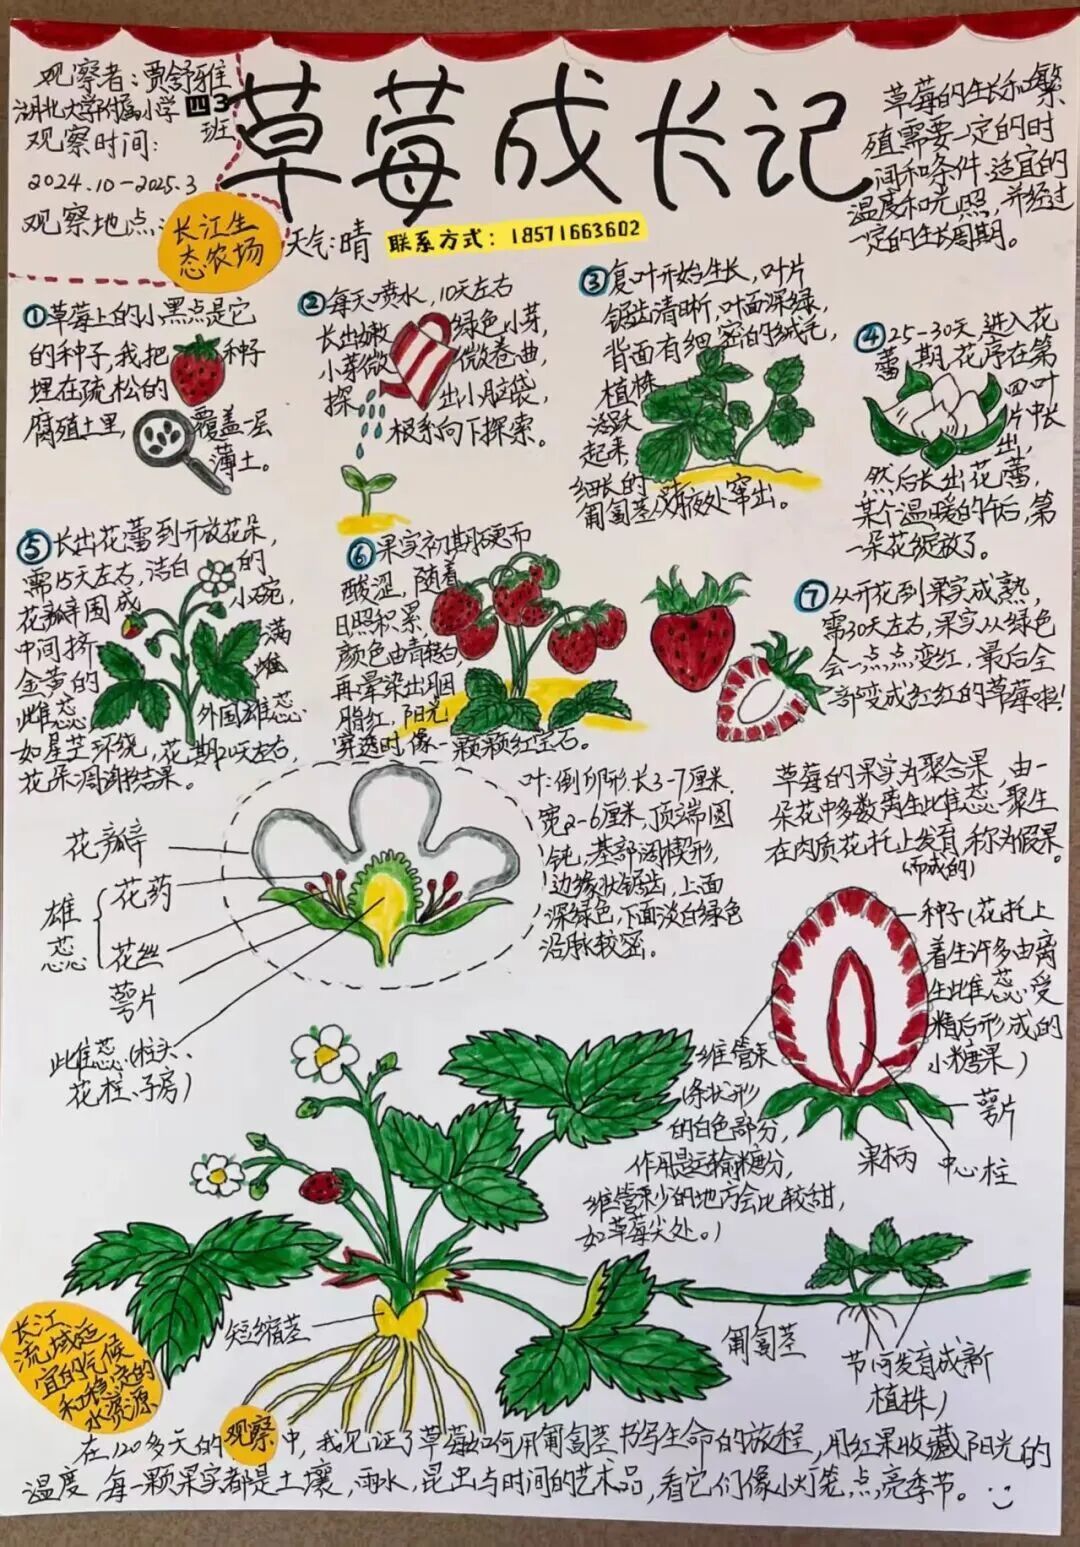 观察者：贾舒雅
湖北大学附属小学四3班
观察时间：
2024.10-2025.3
观察地点：长江生
态农场
草莓成长记
天气：晴
联系方式：18571663602
草莓的生长和繁
殖需要一定的时
间和条件.适宜的
温度和光照，并经过
一定的生长周期。
①草莓上的小黑点是它
的种子,我把种子
埋在疏松的
腐殖土里，覆盖一层
薄土。
②每天喷水，10天左右
长出嫩绿色小芽，
小芽微微卷曲，
探出小脑袋，
根系向下探索。
③复叶开始生长，叶片
锯齿清晰，叶面深绿，
背面有细密的绒毛，
植株
活跃
起来，
细长的
匍匐茎从腋处窜出。
④25-30天，进入花
蕾期，花序在第
四叶
片中长
出，
然后长出花蕾，
某个温暖的午后，第
一朵花绽放了。
⑤长出花蕾到开放花朵，
需15天左右，洁白的
花瓣围成小碗，
中间挤满
金黄的雌
雌蕊，外围雄蕊
如星芒环绕，花期20天左右，
花朵凋谢结果。
⑥果实初期硬而
酸涩，随着
日照积累
颜色由青转白，
再晕染出胭
脂红，阳光
穿透时像一颗颗红宝石。
⑦从开花到果实成熟，
需30天左右，果实从绿色
会一点点变红，最后全
部变成红红的草莓啦！
花瓣
雄蕊
花药
花丝
萼片
雌蕊（柱头、
花柱、子房）
叶：倒卵形.长3-7厘米.
宽2-6厘米，顶端圆
钝，基部阔楔形，
边缘状锯齿，上面
深绿色，下面淡白绿色
沿脉较密。
草莓的果实为聚合果，由一
朵花中多数离生雌蕊聚生
在肉质花托上发育，称为假果。
（而成的）
种子（花托上
着生许多由离
生雌蕊受
精后形成的
小糖果）
萼片
果柄
中心柱
维管束
（条状形
的白色部分，
作用是运输糖分，
维管束少的地方会比较甜，
如草莓尖处。）
短缩茎
匍匐茎
节（可发育成新
植株）
长江
流域适
宜的气候
和稳定的
水资源
在120多天的观察中，我见证了草莓如何用匍匐茎书写生命的旅程，用红果收藏阳光的
温度，每一颗果实都是土壤，雨水，昆虫与时间的艺术品，看它们像小灯笼，点亮季节。